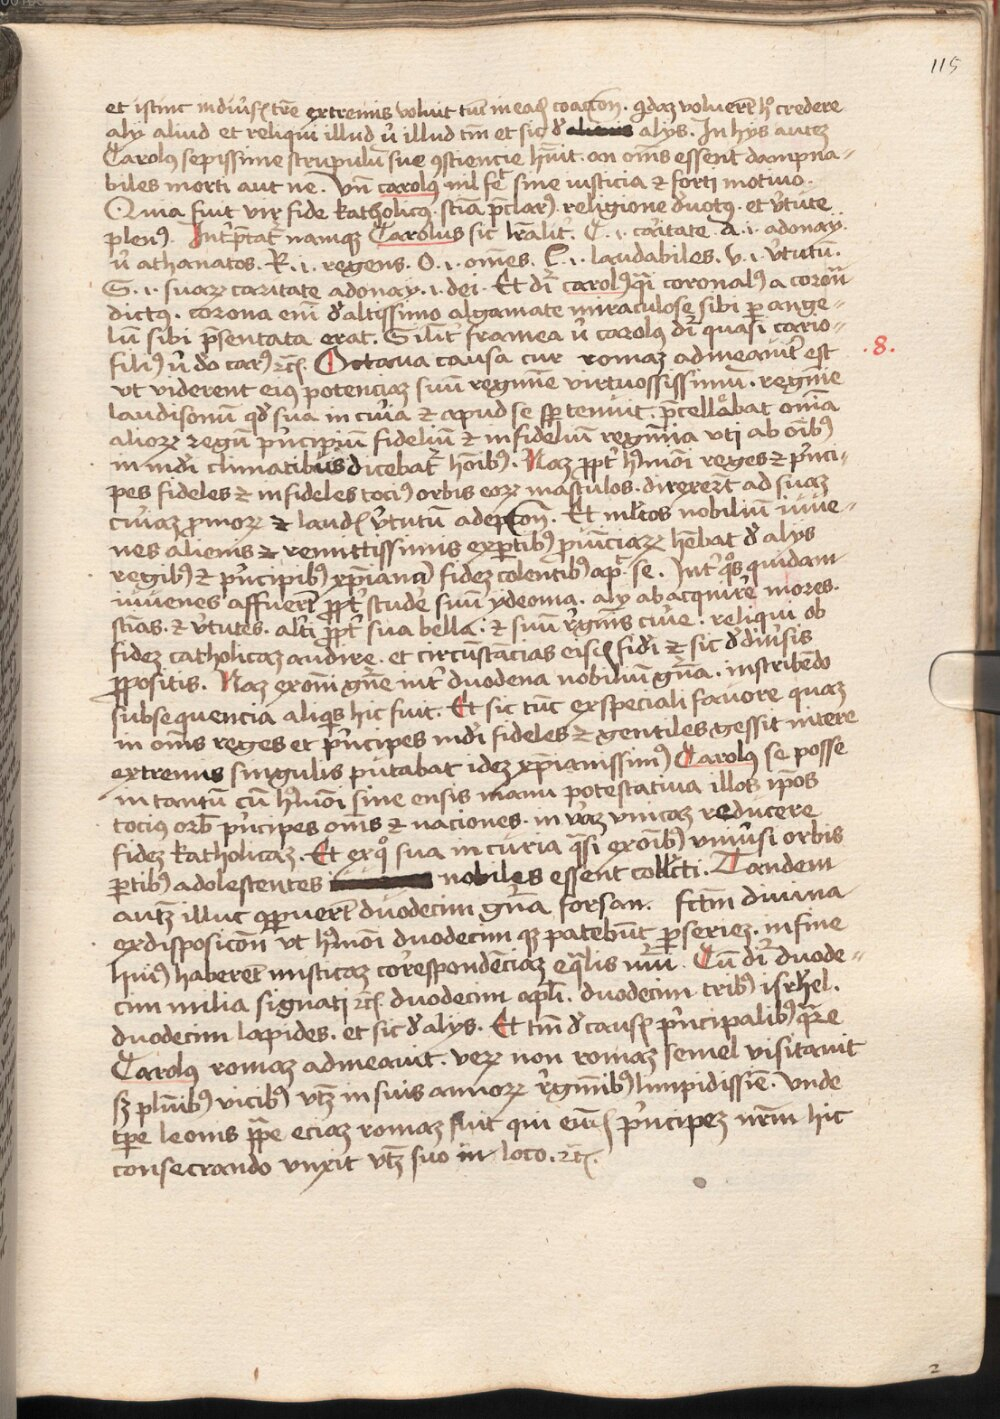 115
et istinc in diu̓s̨ tr̄e extremis voluit tn̄ in eadꝫ coacc̄on. qdaꝫ voluer̄t hͦ credere
aly aliud et reliqui illud ul̓ illud tm̄ et sic d̓ alys. In hys auteꝫ
Carolꝰ sepissime strupulū sue ꝯsciencie hūit. an om̄s essent dampna-
biles morti aut ne. Vn̄ carolꝰ nil fec̄ sine iusticia ⁊ forti motiuo.
Quia fuit vir fide katholicꝰ. sciā p̄clarꝰ. religione deuotꝰ. et v̓tute
plenꝰ. Int̓p̄tat᷑ namqꝫ Carolus sic lr̄alit̓. C .i. caritate. A .i. adonay.
ul̓ athanatos. R .i. regens. O .i. om̄es. L .i. laudabiles. V .i. v̓tutū.
S .i. suaꝝ caritate adonay .i. dei. Et dr̄ carolꝰ qͣi coronalꝰ a corona
dictus. corona eni̅ d̓ altissimo algamate miraculose sibi per ange-
lū sibi p̄sentata erat. Silit̓ framea ul̓ carolꝰ dr̄ quasi cario-
filꝰ ul̓ do carꝰ ⁊c̄. Octaua causa cur romaꝫ admeauit est
.8.
vt viderent eiꝰ potenciaꝫ suū regimē virtuosissimū. regimē
laudisonū qd̓ sua in cu̓ia ⁊ apud se sp̄ tenuit. p̄cellabat om̄ia
alioꝝ regū p̓ncipiū fideliū ⁊ infideliū regimīa vti ab oībꝰ
in mūdi climatibus dicebat᷑ hoībꝰ. Naꝫ ꝓpt̓ hmōi reges ⁊ p̓nci-
pes fideles ⁊ infideles tociꝰ orbis eoꝝ masculos. direxer̄t ad suaꝫ
cu̓iaꝫ ꝓ moꝝ ⁊ laud̨ v̓tutū adepcōn. Et ml̓tos nobiliū iuue-
nes alienis ⁊ remittissimis exꝑtibꝰ ꝓuīciaꝝ hēbat d̓ alys
regibꝰ ⁊ p̓ncipibꝰ xp̄ianā fideꝫ colentibꝰ apᷘ se. Int̓ qͦs quidam
iuuenes affuer̄t ꝓpt̓ stude suū ydeoma. aly ab acquire mores.
scīas. ⁊ v̓tutes. alt̓i ꝓpt̓ sua bella. ⁊ suū r̓gimīs cu̓e. reliqui ob
fideꝫ catholicaꝫ audire. et circūstācias eisꝫ fidi ⁊ sic d̓ diu̓sis
ꝓpositis. Naꝫ ex om̄i gn̄e int̓ duodena nobiliū gn̄a. inscribēdo
subsequencia aliqͥs hic fuit. Et sic tūc ex speciali fauore quaꝫ
in om̄s reges et p̓ncipes mūdi fideles ⁊ gentiles gessit intere
extremis singulis putabat ideꝫ xp̄ianissimꝰ Carolꝰ se posse
in tantū cū hmōi sine ensis manu potestatiua illos ip̄os
tocius orb̄ p̓ncipes om̄s ⁊ naciones. in v̓aꝫ vnicaꝫ reducere
fideꝫ katholicaꝫ. Et ex qͦ sua in curia qͣsi ex oībꝰ vniu̓si orbis
ꝑtibꝰ adolescentes nobiles essent coll̓cti. Tandem
autꝫ illuc ꝓpuer̄t duodecim gn̄a forsan. sc̄tm̄ diuina
ex disposicōn vt hmōi duodecim qꝫ patebūt ꝑ serieꝫ. in fine
huiꝰ haberēt misticaꝫ correspondēciaꝫ eqͣlis nūi. Cū dr̄ duode-
cim milia signati ⁊c̄. duodecim apl̄i. duodecim tribꝰ isrl̄hel.
duodecim lapides. et sic d̓ alys. Et tm̄ d̓ causꝭ p̓ncipalibꝰ qͣre
Carolus romaꝫ admeauit. veꝝ non romaꝫ semel visitauit
sꝫ plīibꝰ vicibꝰ vtꝫ in suis annoꝝ r̓gimībꝰ limpidissīe. Vnde
tꝑe leonis pp̄e eciaꝫ romaꝫ fuit qui eūdꝫ p̓ncipeꝫ nr̄m hic
consecrando vnxit vtꝫ suo in loco. ⁊c̄.
2